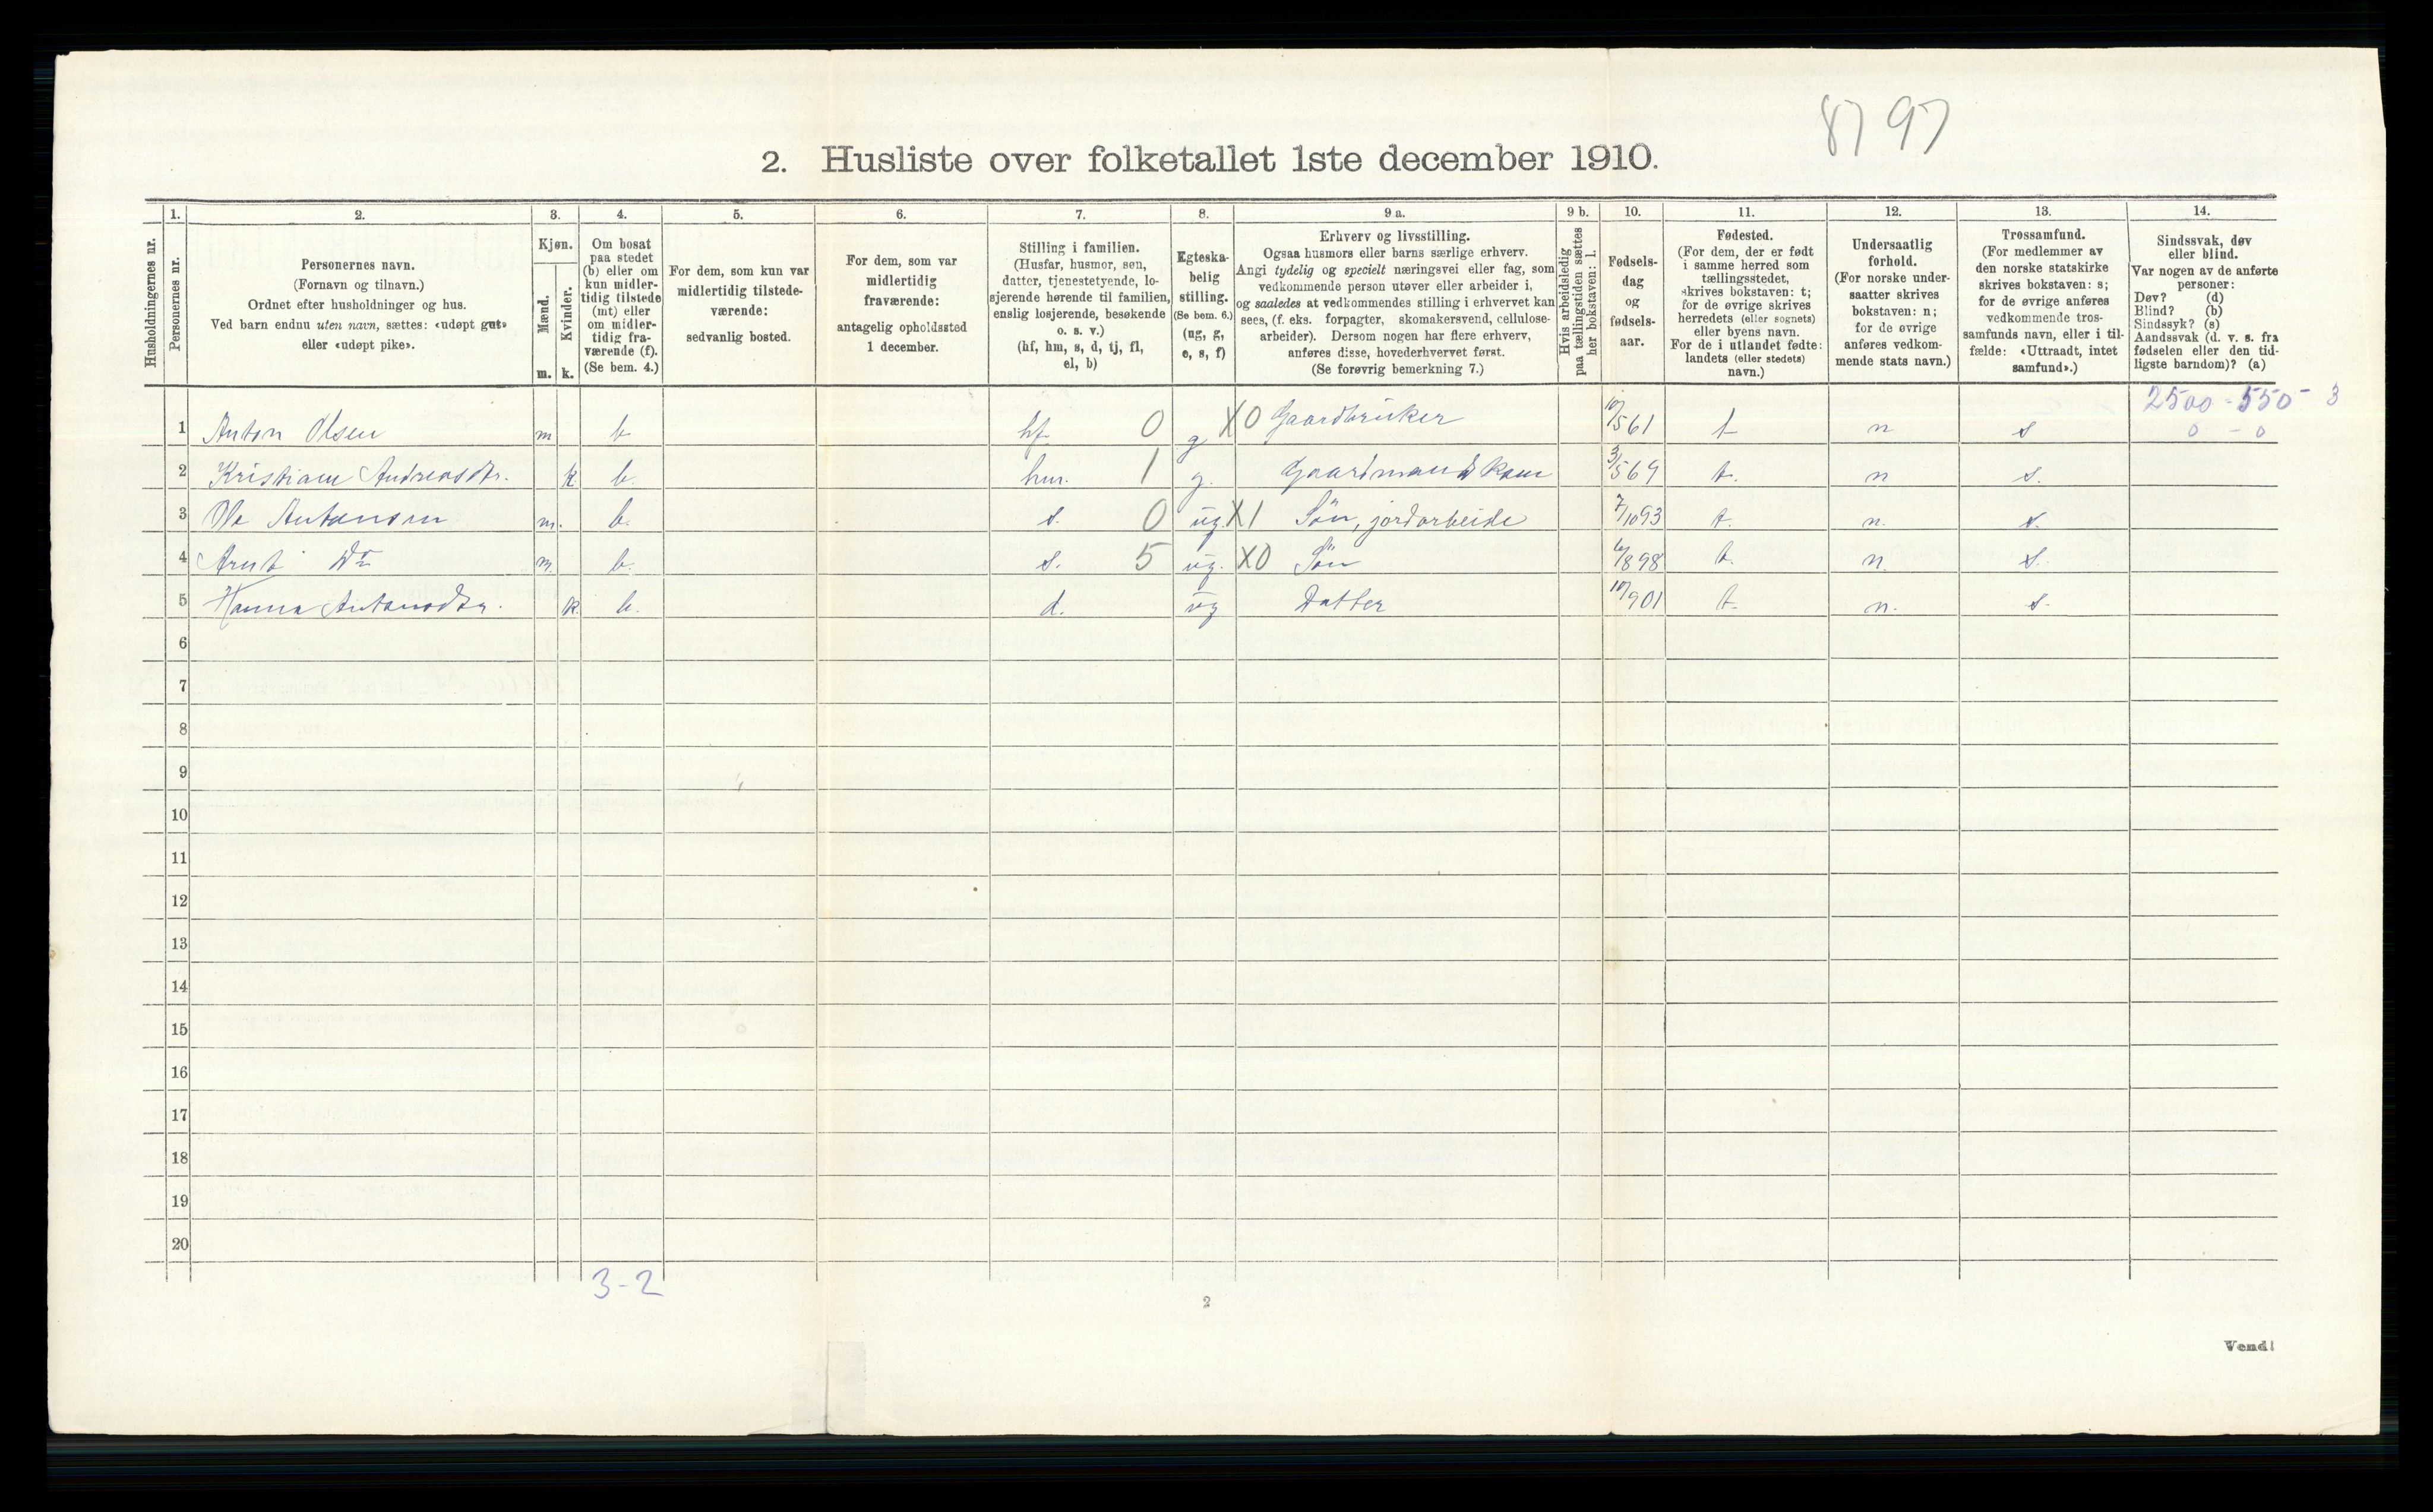 87 97
2. Husliste over folketallet 1ste december 1910.
1. 2. 3. 4. 5. 6. 7. 8. 9 a. 9 b. 10. 11. 12. 13. 14.
Husholdningernes nr.
Personernes nr.
Personernes navn.
(Fornavn og tilnavn.)
Ordnet efter husholdninger og hus.
Ved barn endnu uten navn, sættes: «udøpt gut»
eller «udøpt pike».
Kjøn.
Mænd.
Kvinder.
m. k.
Om bosat
paa stedet
(b) eller om
kun midler-
tidig tilstede
(mt) eller
om midler-
tidig fra-
værende (f).
(Se bem. 4.)
For dem, som kun var
midlertidig tilstede-
værende:
sedvanlig bosted.
For dem, som var
midlertidig
fraværende:
antagelig opholdssted
1 december.
Stilling i familien.
(Husfar, husmor, søn,
datter, tjenestetyende, lo-
sjerende hørende til familien,
enslig losjerende, besøkende
o. s. v.)
(hf, hm, s, d, tj, fl,
el, b)
Egteska-
belig
stilling.
(Se bem. 6.)
(ug, g,
e, s, f)
Erhverv og livsstilling.
Ogsaa husmors eller barns særlige erhverv.
Angi tydelig og specielt næringsvei eller fag, som
vedkommende person utøver eller arbeider i,
og saaledes at vedkommendes stilling i erhvervet kan
sees, (f. eks. forpagter, skomakersvend, cellulose-
arbeider). Dersom nogen har flere erhverv,
anføres disse, hovederhvervet først.
(Se forøvrig bemerkning 7.)
Hvis arbeidsledig
paa tællingstiden sættes
her bokstaven: l.
Fødsels-
dag
og
fødsels-
aar.
Fødested.
(For dem, der er født
i samme herred som
tællingsstedet,
skrives bokstaven: t;
for de øvrige skrives
herredets (eller sognets)
eller byens navn.
For de i utlandet fødte:
landets (eller stedets)
navn.)
Undersaatlig
forhold.
(For norske under-
saatter skrives
bokstaven: n;
for de øvrige
anføres vedkom-
mende stats navn.)
Trossamfund.
(For medlemmer av
den norske statskirke
skrives bokstaven: s;
for de øvrige anføres
vedkommende tros-
samfunds navn, eller i til-
fælde: «Uttraadt, intet
samfund».)
Sindssvak, døv
eller blind.
Var nogen av de anførte
personer:
Døv? (d)
Blind? (b)
Sindssyk? (s)
Aandssvak (d. v. s. fra
fødselen eller den tid-
ligste barndom)? (a)
2500 - 550 - 3
0 - 0
1 Anton Olsen m b hf 0 g X0 Gaardbruker 10/5 61 t n s
2 Kristiane Andreasdtr. k b. hm. 1 g. Gaardmandskone 3/5 69 t. n s.
3 Ole Antonsen m. b. s. 0 ug. X1 Søn, jordarbeide 7/10 93 t. n. s.
4 Arnt Do m. b. s. 5 ug. X0 Søn 6/8 98 t. n. s.
5 Hanna Antonsdtr. k. b. d. ug Datter 10/9 01 t. n. s.
6
7
8
9
10
11
12
13
14
15
16
17
18
19
20
3-2
2
Vend!